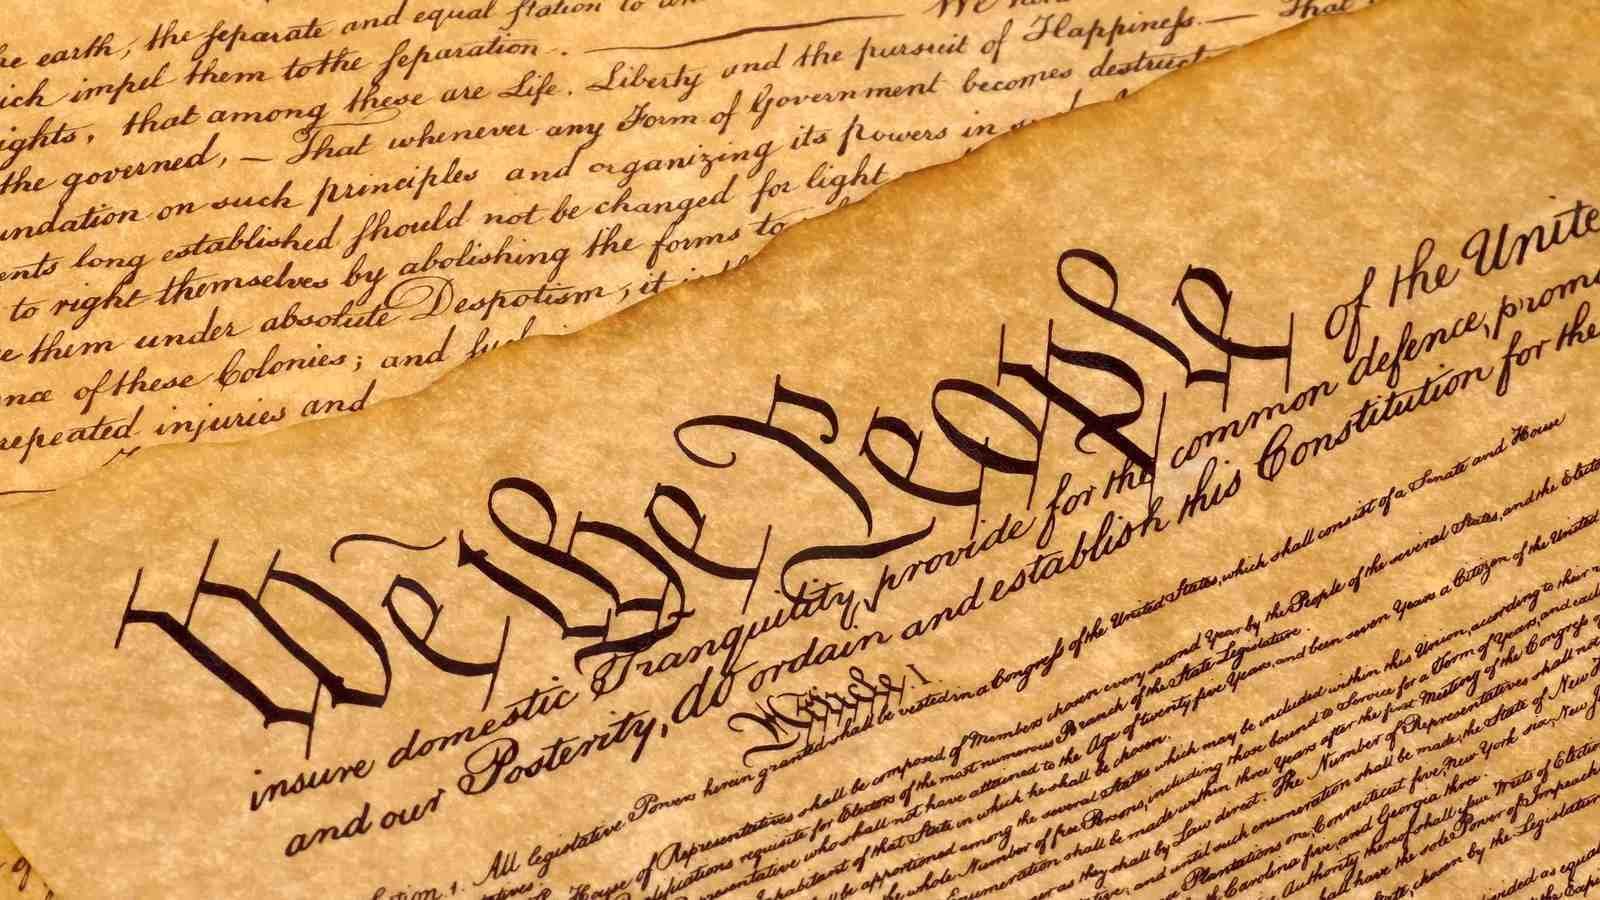 he earth, the separate and equal station to
We
hich impel them to the separation.
ights, that among these are Life, Liberty and the pursuit of Happiness. — That
the governed, — That whenever any Form of Government becomes destruct
undation on such principles and organizing its powers in
ents long established should not be changed for light
to right themselves by abolishing the forms to
e them under absolute Despotism, it
nce of these Colonies; and
repeated injuries and
We the People of the Unite
insure domestic Tranquility, provide for the common defence, promo
and our Posterity, do ordain and establish this Constitution for the
Article. I.
ction. 1. All legislative Powers herein granted shall be vested in a Congress of the United States, which shall consist of a Senate and House
House of Representatives shall be composed of Members chosen every second Year by the People of the several States, and the Elect
Qualifications requisite for Electors of the most numerous Branch of the State Legislature.
Representative who shall not have attained to the Age of twenty five Years, and been seven Years a Citizen of the United
Inhabitant of that State in which he shall be chosen.
be apportioned among the several States which may be included within this Union, according to their
the whole Number of free Persons, including those bound to Service for a Term of Years, and
Enumeration shall be made within three Years after the first Meeting of the Congress
as they shall by Law direct. The Number of Representatives shall not
and until such enumeration shall be made, the State of New
Plantations one, Connecticut five, New York six, New
Carolina five, and Georgia three.
Authority thereof shall Writs of Election
shall have the sole Power of Impeach
chosen by the Legislature
divided as equal